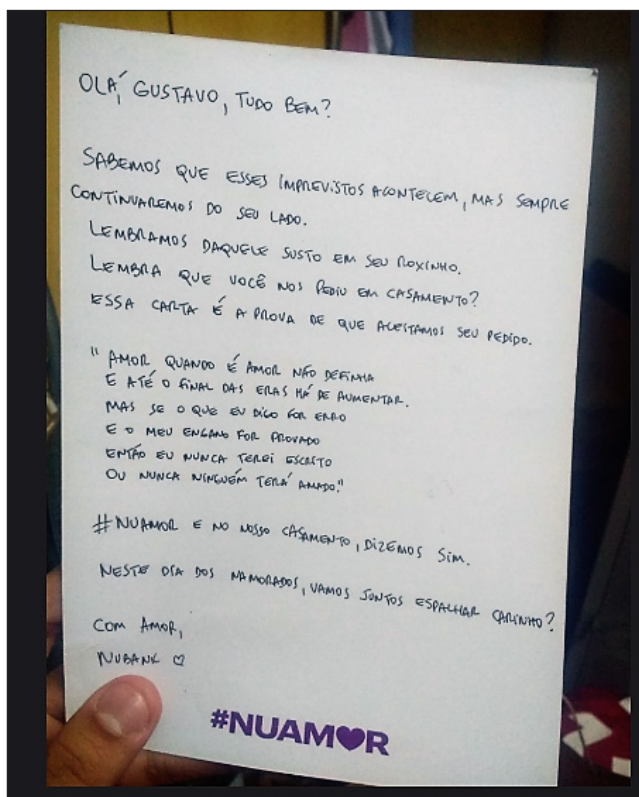 OLÁ, GUSTAVO, TUDO BEM?
SABEMOS QUE ESSES IMPREVISTOS ACONTECEM, MAS SEMPRE
CONTINUAREMOS DO SEU LADO.
LEMBRAMOS DAQUELE SUSTO EM SEU ROXINHO.
LEMBRA QUE VOCÊ NOS PEDIU EM CASAMENTO?
ESSA CARTA É A PROVA DE QUE ACEITAMOS SEU PEDIDO.
"AMOR QUANDO É AMOR NÃO DEFINHA
E ATÉ O FINAL DAS ERAS HÁ DE AUMENTAR.
MAS SE O QUE EU DIGO FOR ERRO
E O MEU ENGANO FOR PROVADO
ENTÃO EU NUNCA TEREI ESCRITO
OU NUNCA NINGUÉM TERÁ AMADO."
#NUAMOR E NO NOSSO CASAMENTO, DIZEMOS SIM.
NESTE DIA DOS NAMORADOS, VAMOS JUNTOS ESPALHAR CARINHO?
COM AMOR,
NUBANK ♡
#NUAM♥R